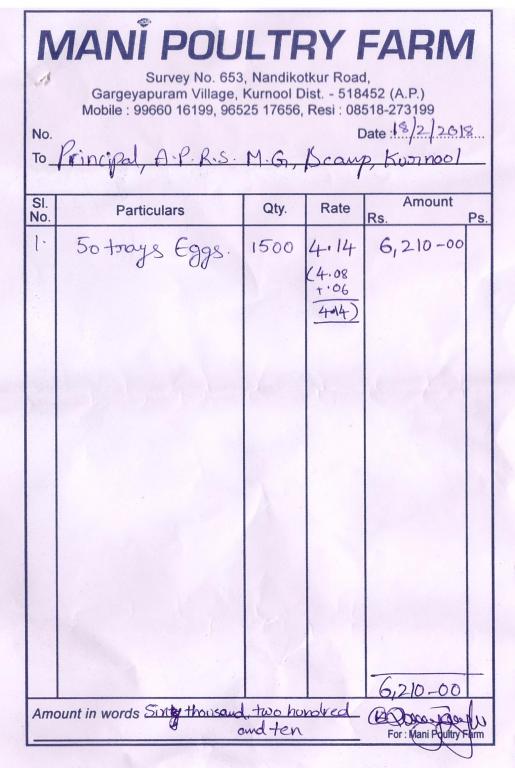 MANI POULTRY FARM
Survey No. 653, Nandikotkur Road,
Gargeyapuram Village, Kurnool Dist. - 518452 (A.P.)
Mobile : 99660 16199, 96525 17656, Resi : 08518-273199
No. Date : 18/2/2018
To Principal, A.P.R.S. M.G, Bcamp, Kurnool
Sl. No. Particulars Qty. Rate Amount Rs. Ps.
1. 50 trays Eggs. 1500 4.14 6,210-00
(4.08
+.06
4.14)
6,210-00
Amount in words Sixty thousand, two hundred
and ten
For : Mani Poultry Farm